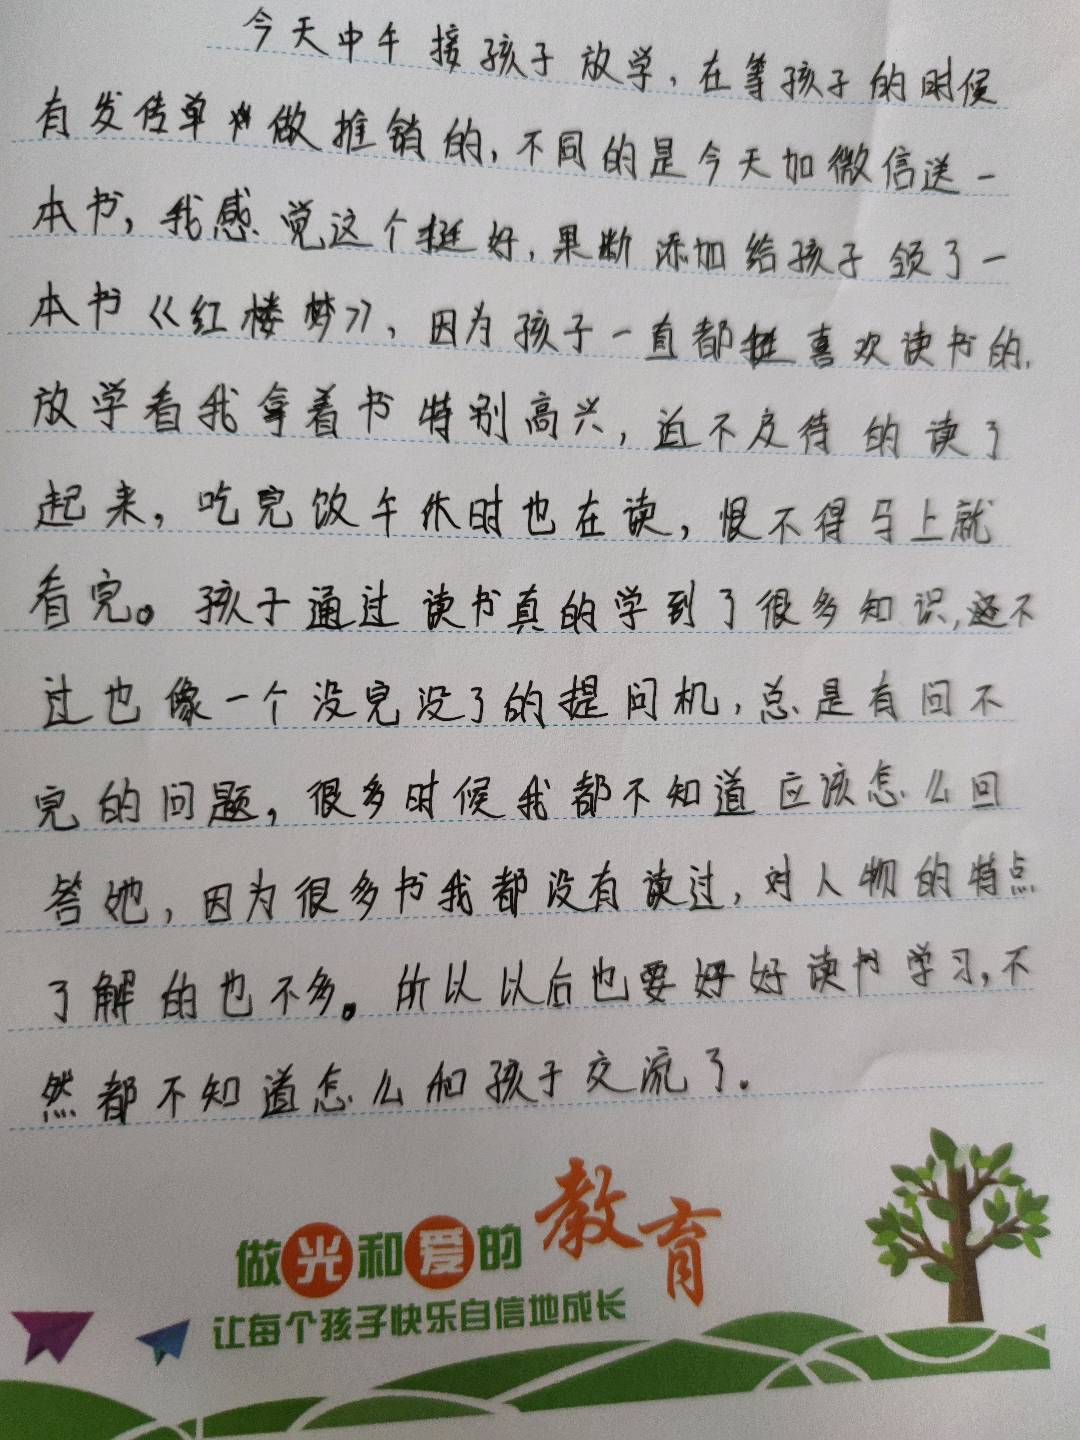 今天中午接孩子放学，在等孩子的时候
有发传单做推销的，不同的是今天加微信送一
本书，我感觉这个挺好，果断添加给孩子领了一
本书《红楼梦》，因为孩子一直都挺喜欢读书的，
放学看我拿着书特别高兴，迫不及待的读了
起来，吃完饭午休时也在读，恨不得马上就
看完。孩子通过读书真的学到了很多知识，不
过也像一个没完没了的提问机，总是有问不
完的问题，很多时候我都不知道应该怎么回
答她，因为很多书我都没有读过，对人物的特点
了解的也不多。所以以后也要好好读书学习，不
然都不知道怎么和孩子交流了。
做光和爱的教育
让每个孩子快乐自信地成长